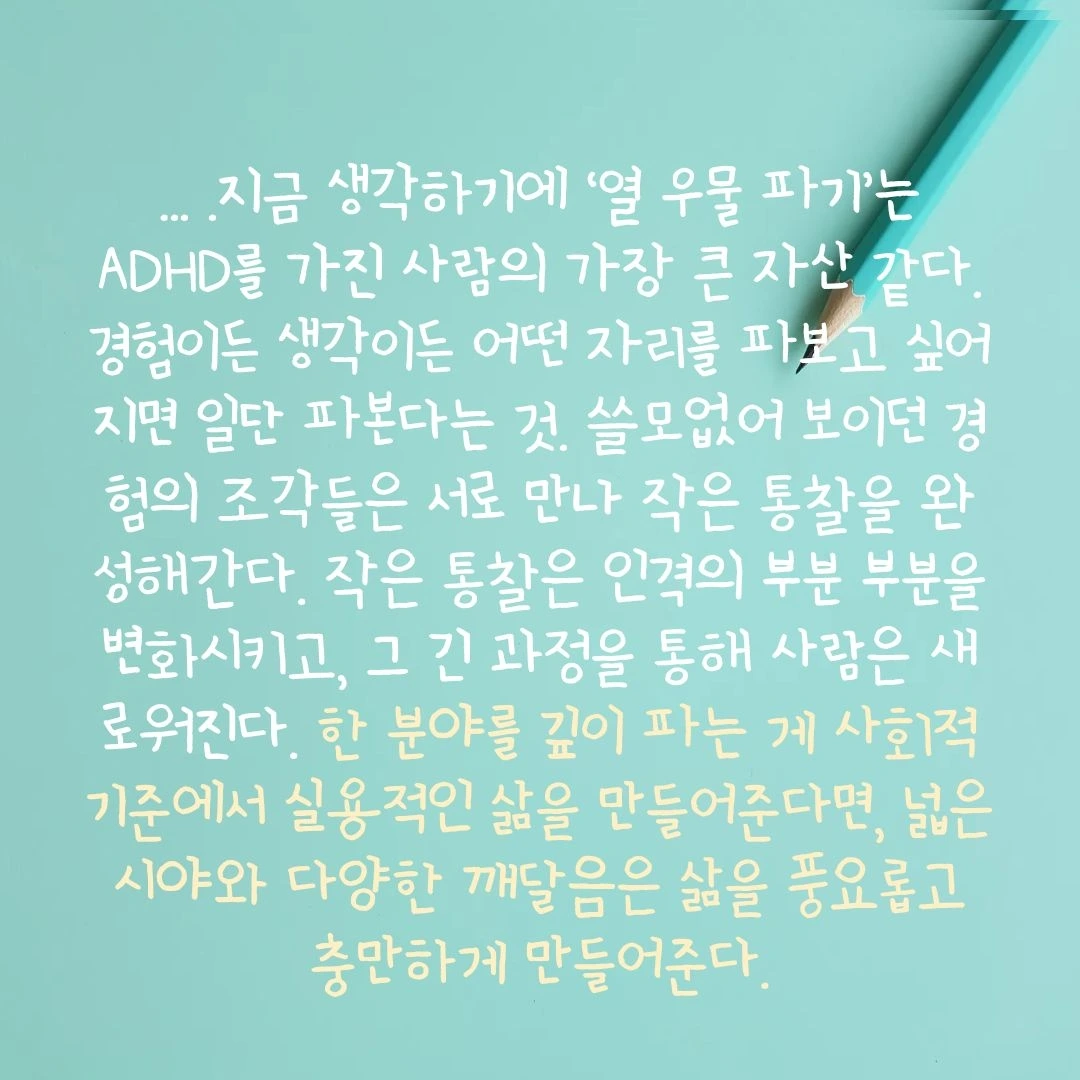 ... .지금 생각하기에 ‘열 우물 파기’는
ADHD를 가진 사람의 가장 큰 자산 같다.
경험이든 생각이든 어떤 자리를 파보고 싶어
지면 일단 파본다는 것. 쓸모없어 보이던 경
험의 조각들은 서로 만나 작은 통찰을 완
성해간다. 작은 통찰은 인격의 부분 부분을
변화시키고, 그 긴 과정을 통해 사람은 새
로워진다. 한 분야를 깊이 파는 게 사회적
기준에서 실용적인 삶을 만들어준다면, 넓은
시야와 다양한 깨달음은 삶을 풍요롭고
충만하게 만들어준다.